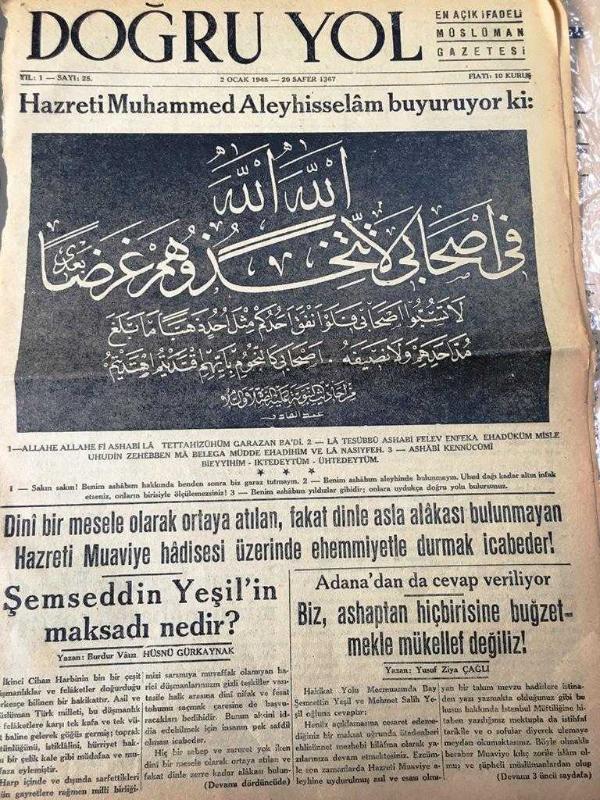 DOĞRU YOL
EN AÇIK İFADELİ
MÜSLÜMAN
GAZETESİ
YIL: 1 — SAYI: 25.
2 OCAK 1948 — 20 SAFER 1367
FİATI: 10 KURUŞ
Hazreti Muhammed Aleyhisselâm buyuruyor ki:
اَللّٰه اَللّٰه
فى اَصْحَابى لَا تَتَّخِذُوهُمْ غَرَضًا بَعْدى
لَا تَسُبُّوا اَصْحَابى فَلَوْ اَنْفَقَ اَحَدُكُمْ مِثْلَ اُحُدٍ ذَهَبًا مَا بَلَغَ
مُدَّ اَحَدِهِمْ وَلَا نَصِيفَهُ . اَصْحَابى كَالنُّجُومِ بِاَيِّهِمُ اقْتَدَيْتُمْ اِهْتَدَيْتُمْ
1—ALLAHE ALLAHE Fİ ASHABİ LÂ TETTAHİZÜHÜM GARAZAN BA'Dİ. 2 — LÂ TESÜBBÜ ASHABİ FELEV ENFEKA EHADÜKÜM MİSLE
UHUDİN ZEHEBBEN MÂ BELEGA MÜDDE EHADİHİM VE LÂ NASIYFEH. 3 — ASHÂBİ KENNÜCÛMİ
BİEYYİHİM - İKTEDEYTÜM - ÜHTEDEYTÜM.
★ ★ ★
1 — Sakın sakın! Benim ashâbım hakkında benden sonra bir garaz tutmayın. 2 — Benim ashâbım aleyhinde bulunmayın. Uhud dağı kadar altın infak
etseniz, onların birisiyle ölçülemezsiniz! 3 — Benim ashâbım yıldızlar gibidir; onlara uydukça doğru yolu bulursunuz.
Dinî bir mesele olarak ortaya atılan, fakat dinle asla alâkası bulunmayan
Hazreti Muaviye hâdisesi üzerinde ehemmiyetle durmak icabeder!
Şemseddin Yeşil'in
maksadı nedir?
Yazan: Burdur Vâızı HÜSNÜ GÜRKAYNAK
İkinci Cihan Harbinin bin bir çeşit
düşmanlıklar ve felâketler doğurduğu
herkesçe bilinen bir hakikattır. Asil ve
Müslüman Türk milleti, bu düşmanlık
felâketlere karşı tek kafa ve tek vü-
halinde gelerek göğüs germiş; toprak
bütünlüğünü, istiklâlini, hürriyet hak-
bir çelik kale gibi müdafaa ve mu-
faza eylemiştir.
Harp içinde ve dışında sarfettikleri
gayretlere rağmen milli birliği-
mizi sarsmıya muvaffak olamıyan ha-
rici düşmanlarımızın gizli teşkiller vası-
tasile halk arasına dinî nifak ve fesat
tohumu saçmak çaresine de başvu-
racakları bedihîdir. Bunun aksini id-
dia edebilmek için insanın pek safdil
olması icabeder.
Hiç bir sebep ve zaruret yok iken
dinî bir mesele olarak ortaya atılan ve
fakat dinle zerre kadar alâkası bulun-
(Devamı dördüncüde)
Adana'dan da cevap veriliyor
Biz, ashaptan hiçbirisine buğzet-
mekle mükellef değiliz!
Yazan: Yusuf Ziya ÇAĞLI
Hakikat Yolu Mecmuasında Bay
Şemsettin Yeşil ve Mehmet Salih Ye-
şil oğluna cevaptır:
Henüz açıklamasına cesaret edeme-
diğiniz bir maksat uğrunda ötedenberi
ehlisünnet mezhebi hilâfına olarak ya-
zılarınıza devam etmektesiniz. Ezcüm-
le son zamanlarda Hazreti Muaviye a-
leyhine uydurulmuş asıl ve esası olmı-
yan bir takım mevzu hadislere istina-
den yazı yazmakta olduğunuz gibi bu
husus hakkında İstanbul Müftülüğüne hi-
taben yazdığınız mektupla da istihfaf
tarikile o ve sofular diyerek ulemaya
meydan okumaktasınız. Böyle olmakla
beraber Muaviye kılıç zorile islâm ol-
muş ve şüpheli müslümanlardan olup
(Devamı 3 üncü sayfada)